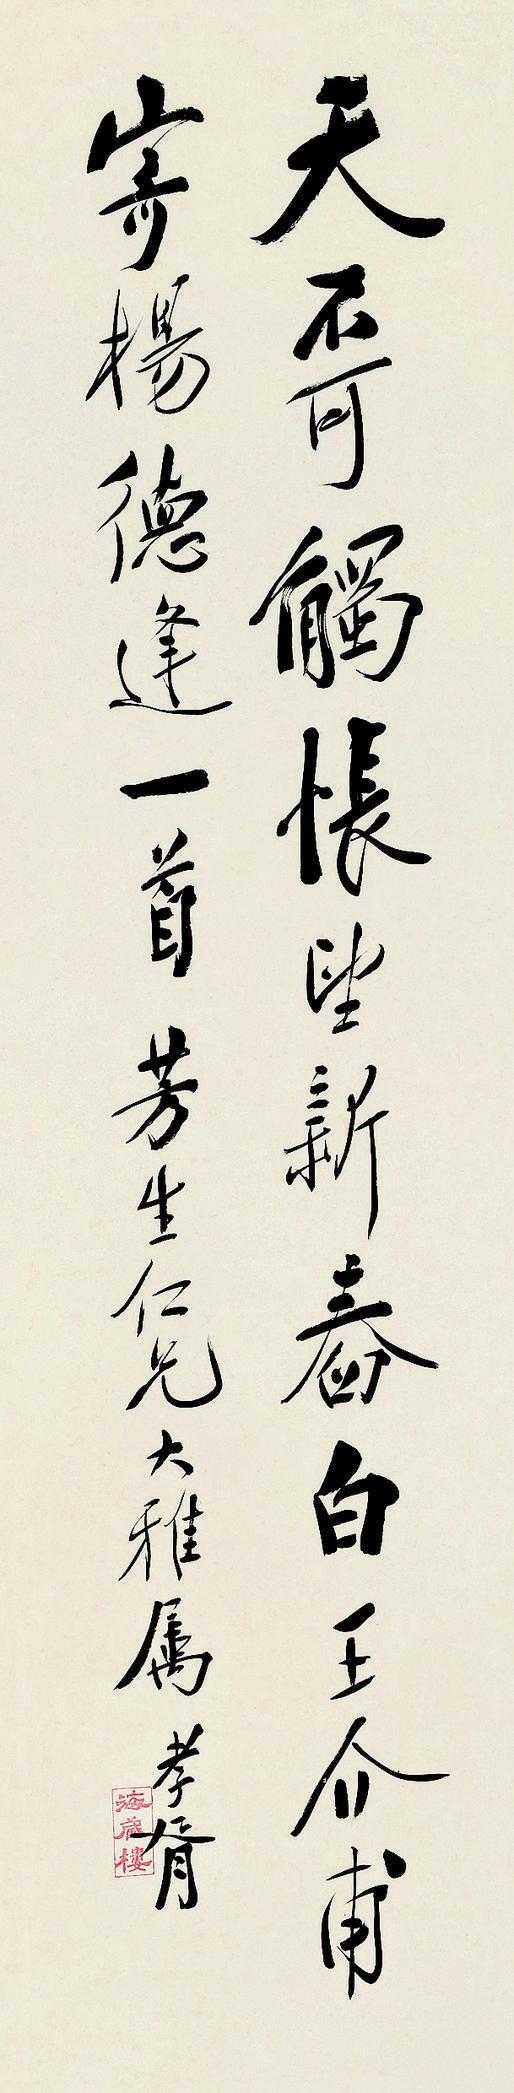 天不可觸悵望新春白王介甫
寄楊德逢一首 芳生仁兄大雅属 孝胥
海藏樓